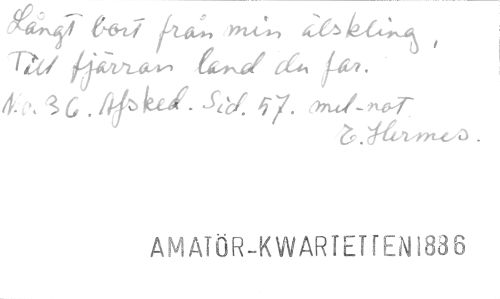 Långt bort från min älskling,
Till fjärran land du far.
No. 36. Afsked. Sid. 57. mel-not
E. Hermes.
AMATÖR-KWARTETTEN 1886